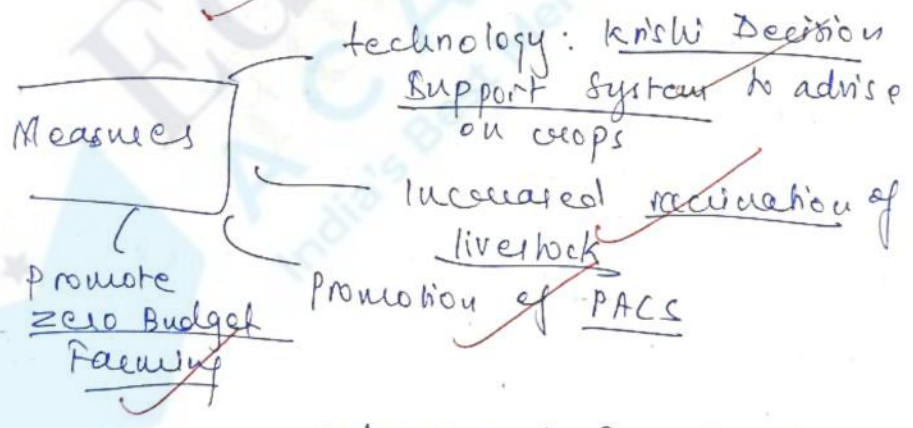 technology: Krishi Decision
Support System to advise
on crops
Measures
Increased vaccination of
livestock
Promotion of PACS
Promote
Zero Budget
Farming